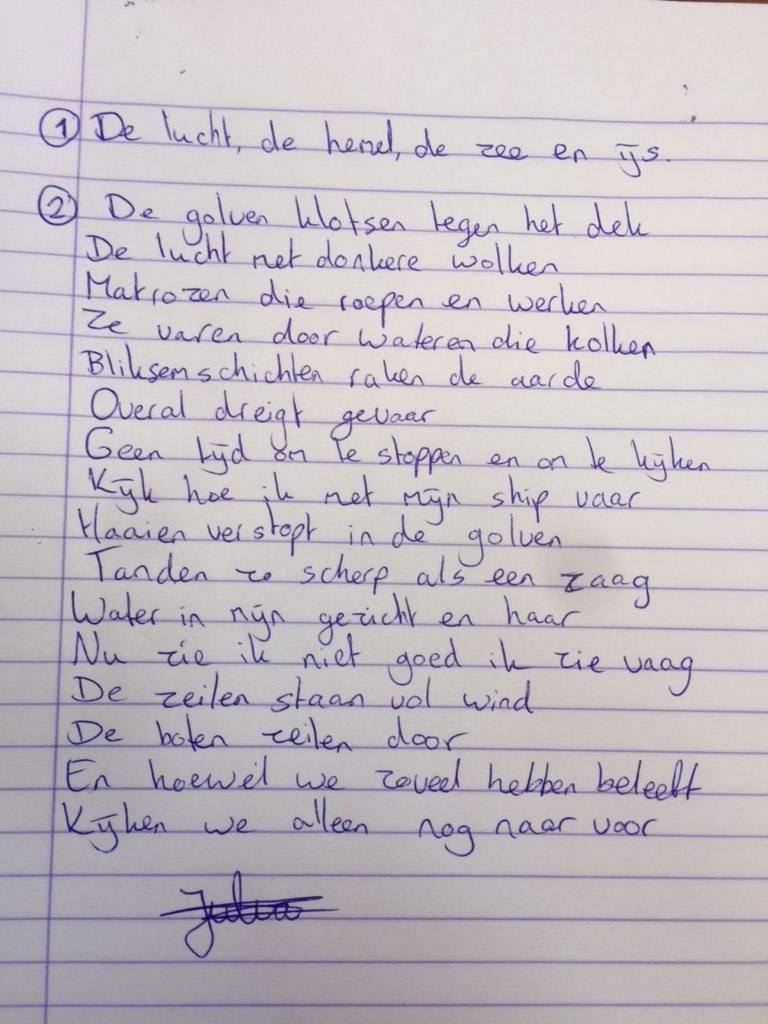 ① De lucht, de hemel, de zee en ijs.
② De golven klotsen tegen het dek
De lucht met donkere wolken
Matrozen die roepen en werken
Ze varen door wateren die kolken
Bliksemschichten raken de aarde
Overal dreigt gevaar
Geen tijd om te stoppen en om te kijken
Kijk hoe ik met mijn ship vaar
Haaien verstopt in de golven
Tanden zo scherp als een zaag
Water in mijn gezicht en haar
Nu zie ik niet goed ik zie vaag
De zeilen staan vol wind
De boten zeilen door
En hoewel we zoveel hebben beleeft
Kijken we alleen nog naar voor